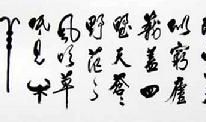 似窮廬
籠盖四
野天蒼々
野茫々
風吹草
低見牛
羊